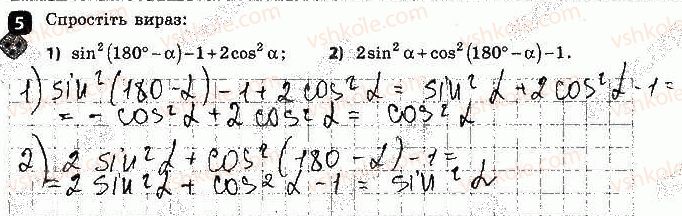 5 Спростіть вираз:
1) sin²(180° − α) − 1 + 2cos² α; 2) 2sin² α + cos²(180° − α) − 1.
1) sin²(180 − α) − 1 + 2 cos² α = sin² α + 2 cos² α − 1 =
= − cos² α + 2 cos² α = cos² α
2) 2 sin² α + cos² (180 − α) − 1 =
= 2 sin² α + cos² α − 1 = sin² α